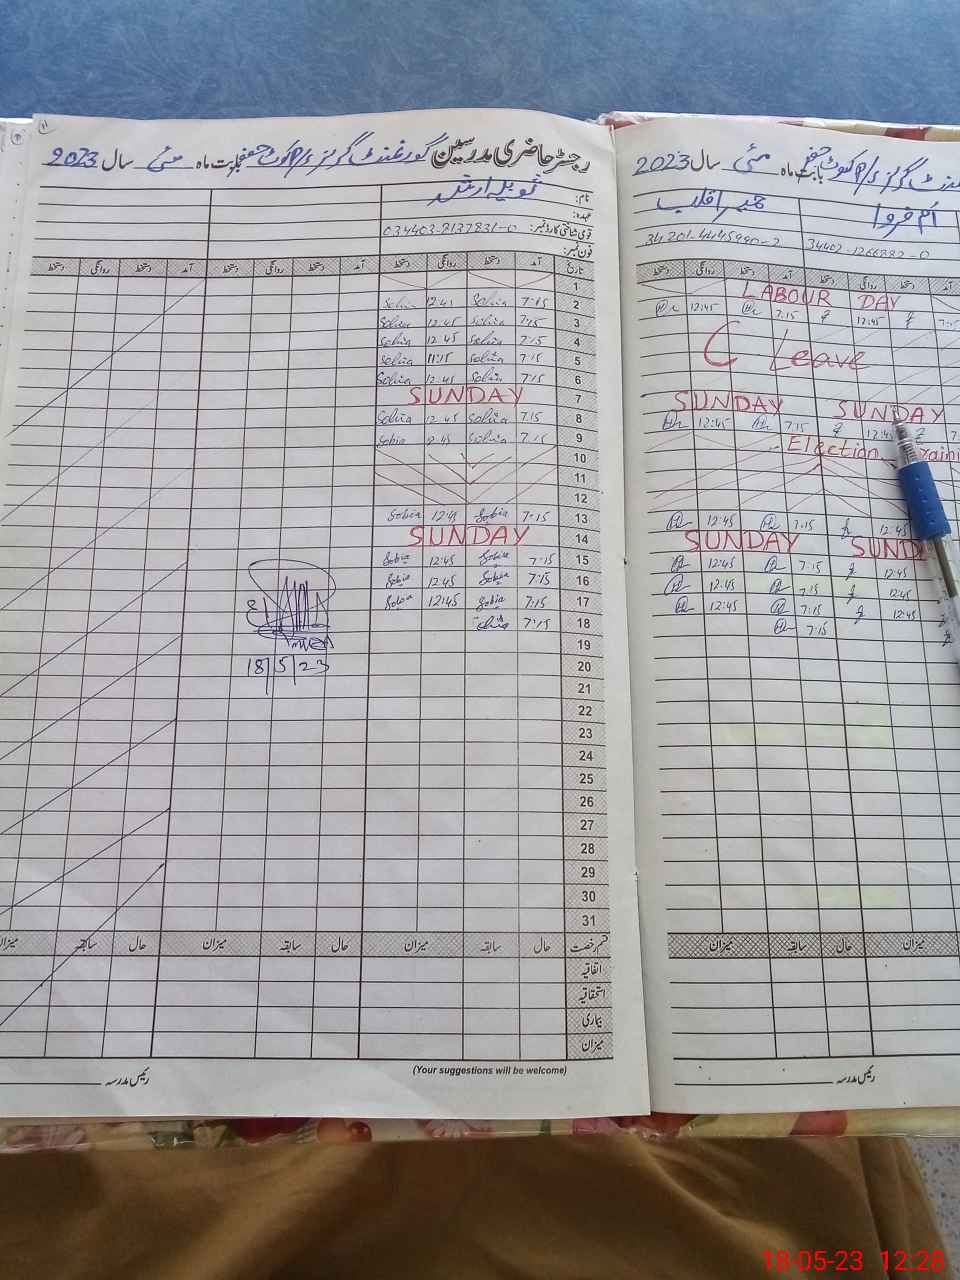 رجسٹر حاضری مدرسین گورنمنٹ گرلز P/S کوٹ جعفر بابت ماہ مئی سال 2023
نام:
عہدہ:
قومی شناختی کارڈ نمبر: 034403-8137831-0
فون نمبر:
تاریخ آمد دستخط روانگی دستخط آمد دستخط روانگی دستخط آمد دستخط روانگی دستخط
1
2 7:15 Sobia 12:45
3 7:15 Sobia 12:45 Sobia
4 7:15 Sobia 12:45 Sobia
5 7:15 Sobia 11:15 Sobia
6 7:15 Sobia 12:45 Sobia
7 SUNDAY
8 7:15 Sobia 12:45 Sobia
9 7:15 Sobia 12:45 Sobia
10
11
12
13 7:15 Sobia 12:45 Sobia
14 SUNDAY
15 7:15 Sobia 12:45 Sobia
16 7:15 Sobia 12:45 Sobia
17 7:15 Sobia 12:45 Sobia
18 7:15
19
20
21
22
23
24
25
26
27
28
29
30
31
18/5/23
قسم رخصت حال سابقہ میزان حال سابقہ میزان حال سابقہ میزان
اتفاقیہ
استحقاقیہ
بیماری
میزان
(Your suggestions will be welcome)
رئیس مدرسہ
گرلز P/S کوٹ جعفر بابت ماہ مئی سال 2023
ام فروا
34402-1266882-0 34201-4445990-2
آمد دستخط روانگی دستخط آمد دستخط روانگی دستخط
LABOUR DAY
12:45 7:15 12:45
C Leave
SUNDAY SUNDAY
12:45 7:15 12:45
Election
12:45 7:15 12:45
SUNDAY SUND
12:45 7:15 12:45
12:45 7:15 12:45
12:45 7:15 12:45
7:15
میزان حال سابقہ میزان
رئیس مدرسہ
18-05-23 12:28